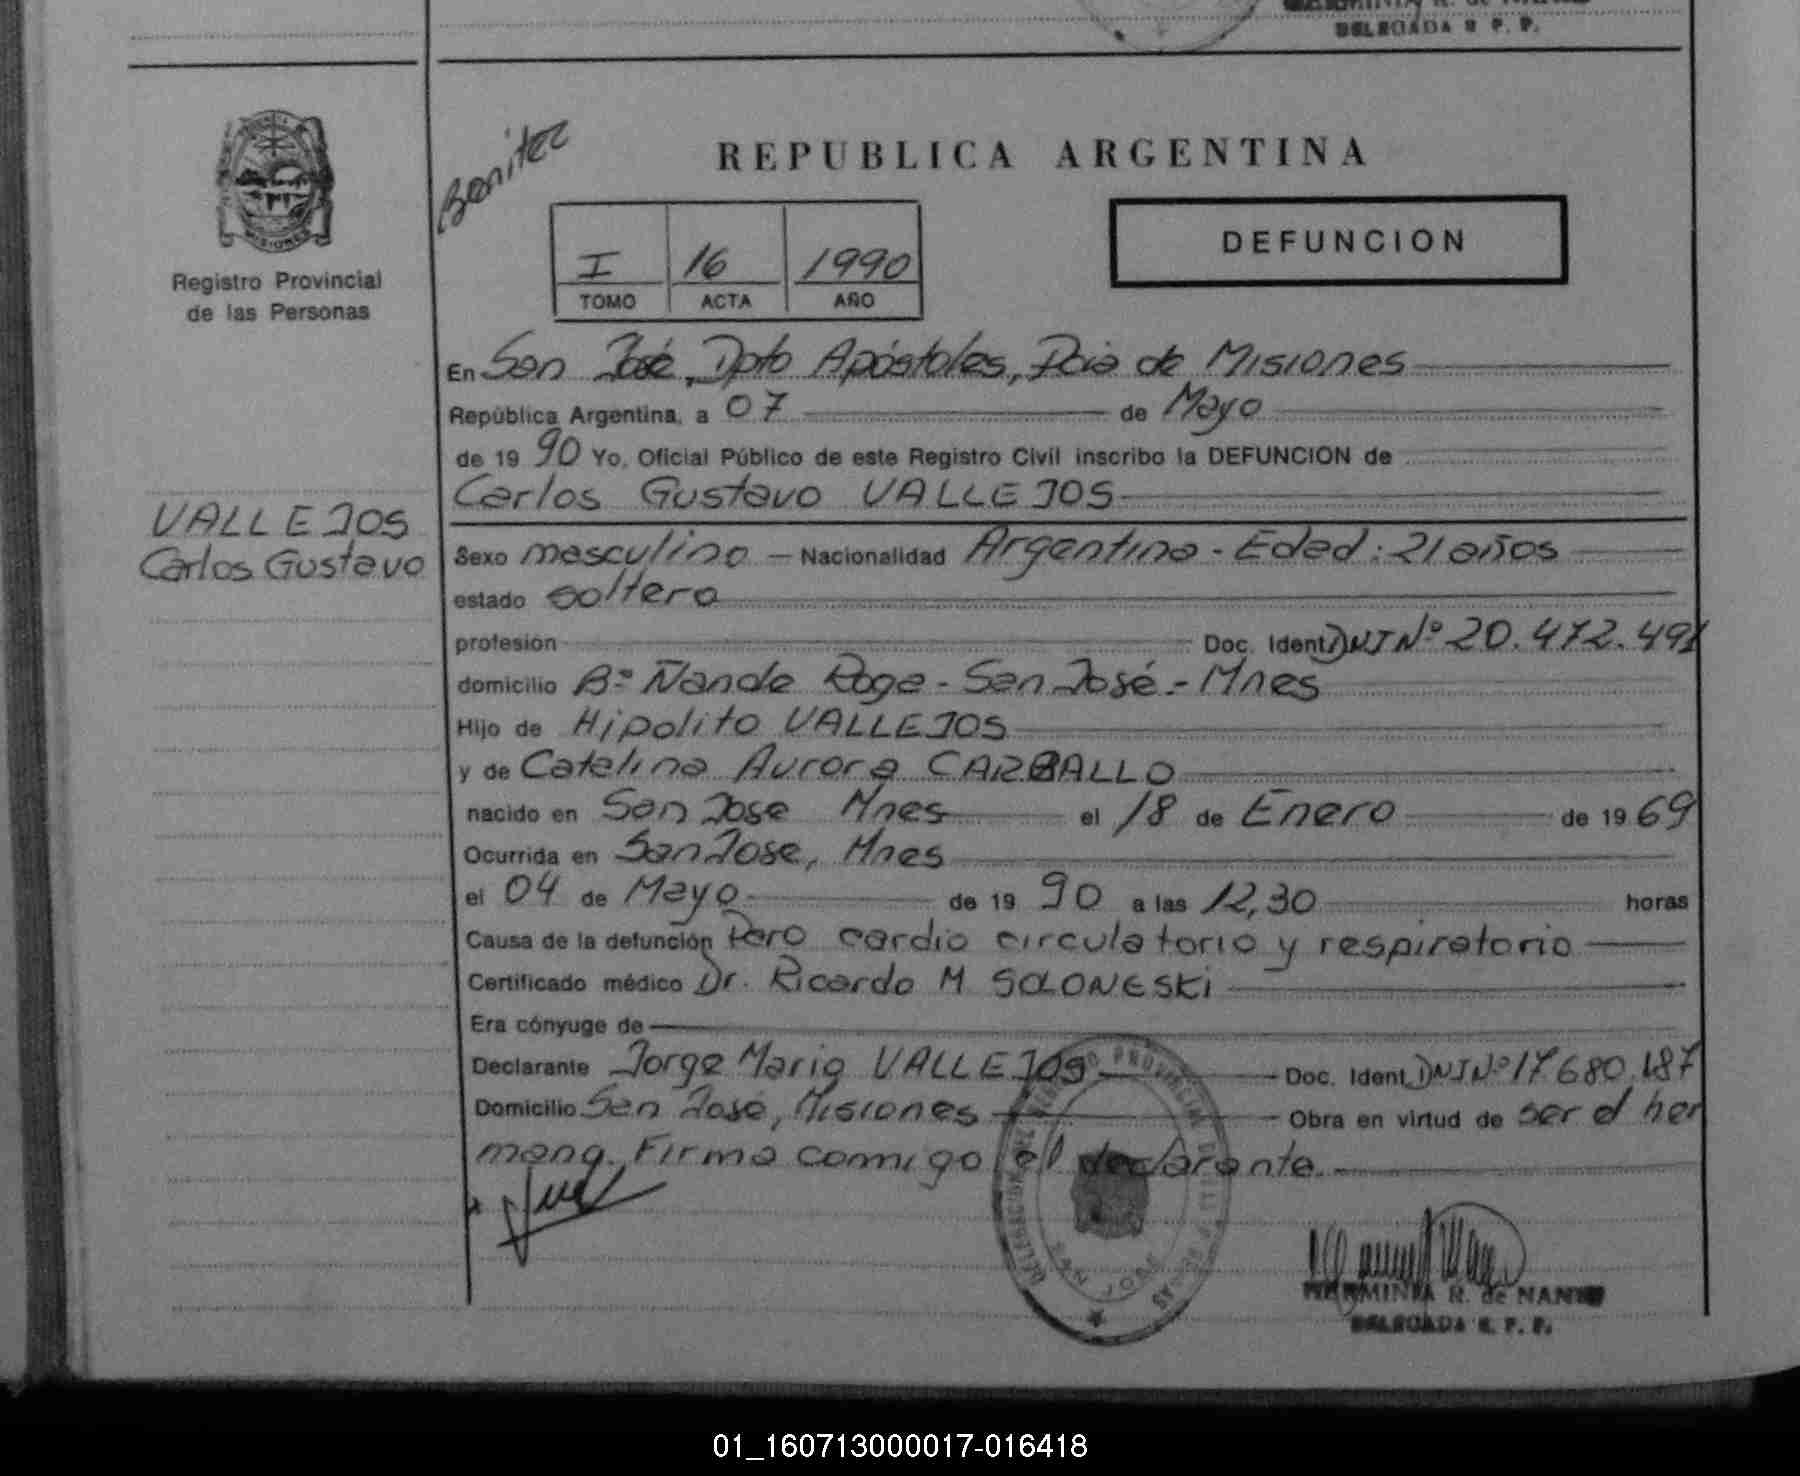 DELEGADA R. P. P.
REPUBLICA ARGENTINA
Benitez
MISIONES
Registro Provincial
de las Personas
I 16 1990
TOMO ACTA AÑO
DEFUNCION
En San José, Dpto Apóstoles, Pcia de Misiones
República Argentina, a 07 de Mayo
de 19 90 Yo, Oficial Público de este Registro Civil inscribo la DEFUNCION de
Carlos Gustavo VALLEJOS
VALLEJOS
Carlos Gustavo
Sexo masculino - Nacionalidad Argentina - Edad: 21 años
estado soltero
profesión Doc. Ident. DNI Nº 20.472.491
domicilio Bº Ñande Roga - San José - Mnes
Hijo de Hipolito VALLEJOS
y de Catalina Aurora CARBALLO
nacido en San Jose Mnes el 18 de Enero de 19 69
Ocurrida en San Jose, Mnes
el 04 de Mayo de 19 90 a las 12,30 horas
Causa de la defunción Paro cardio circulatorio y respiratorio
Certificado médico Dr. Ricardo M SOLONESKI
Era cónyuge de
Declarante Jorge Mario VALLEJOS Doc. Ident. DNI Nº 17.680.187
Domicilio San José, Misiones Obra en virtud de ser el her
mano. Firma conmigo el declarante.
SAN JOSE
HERMINIA R. de NANNI
DELEGADA R. P. P.
01_160713000017-016418